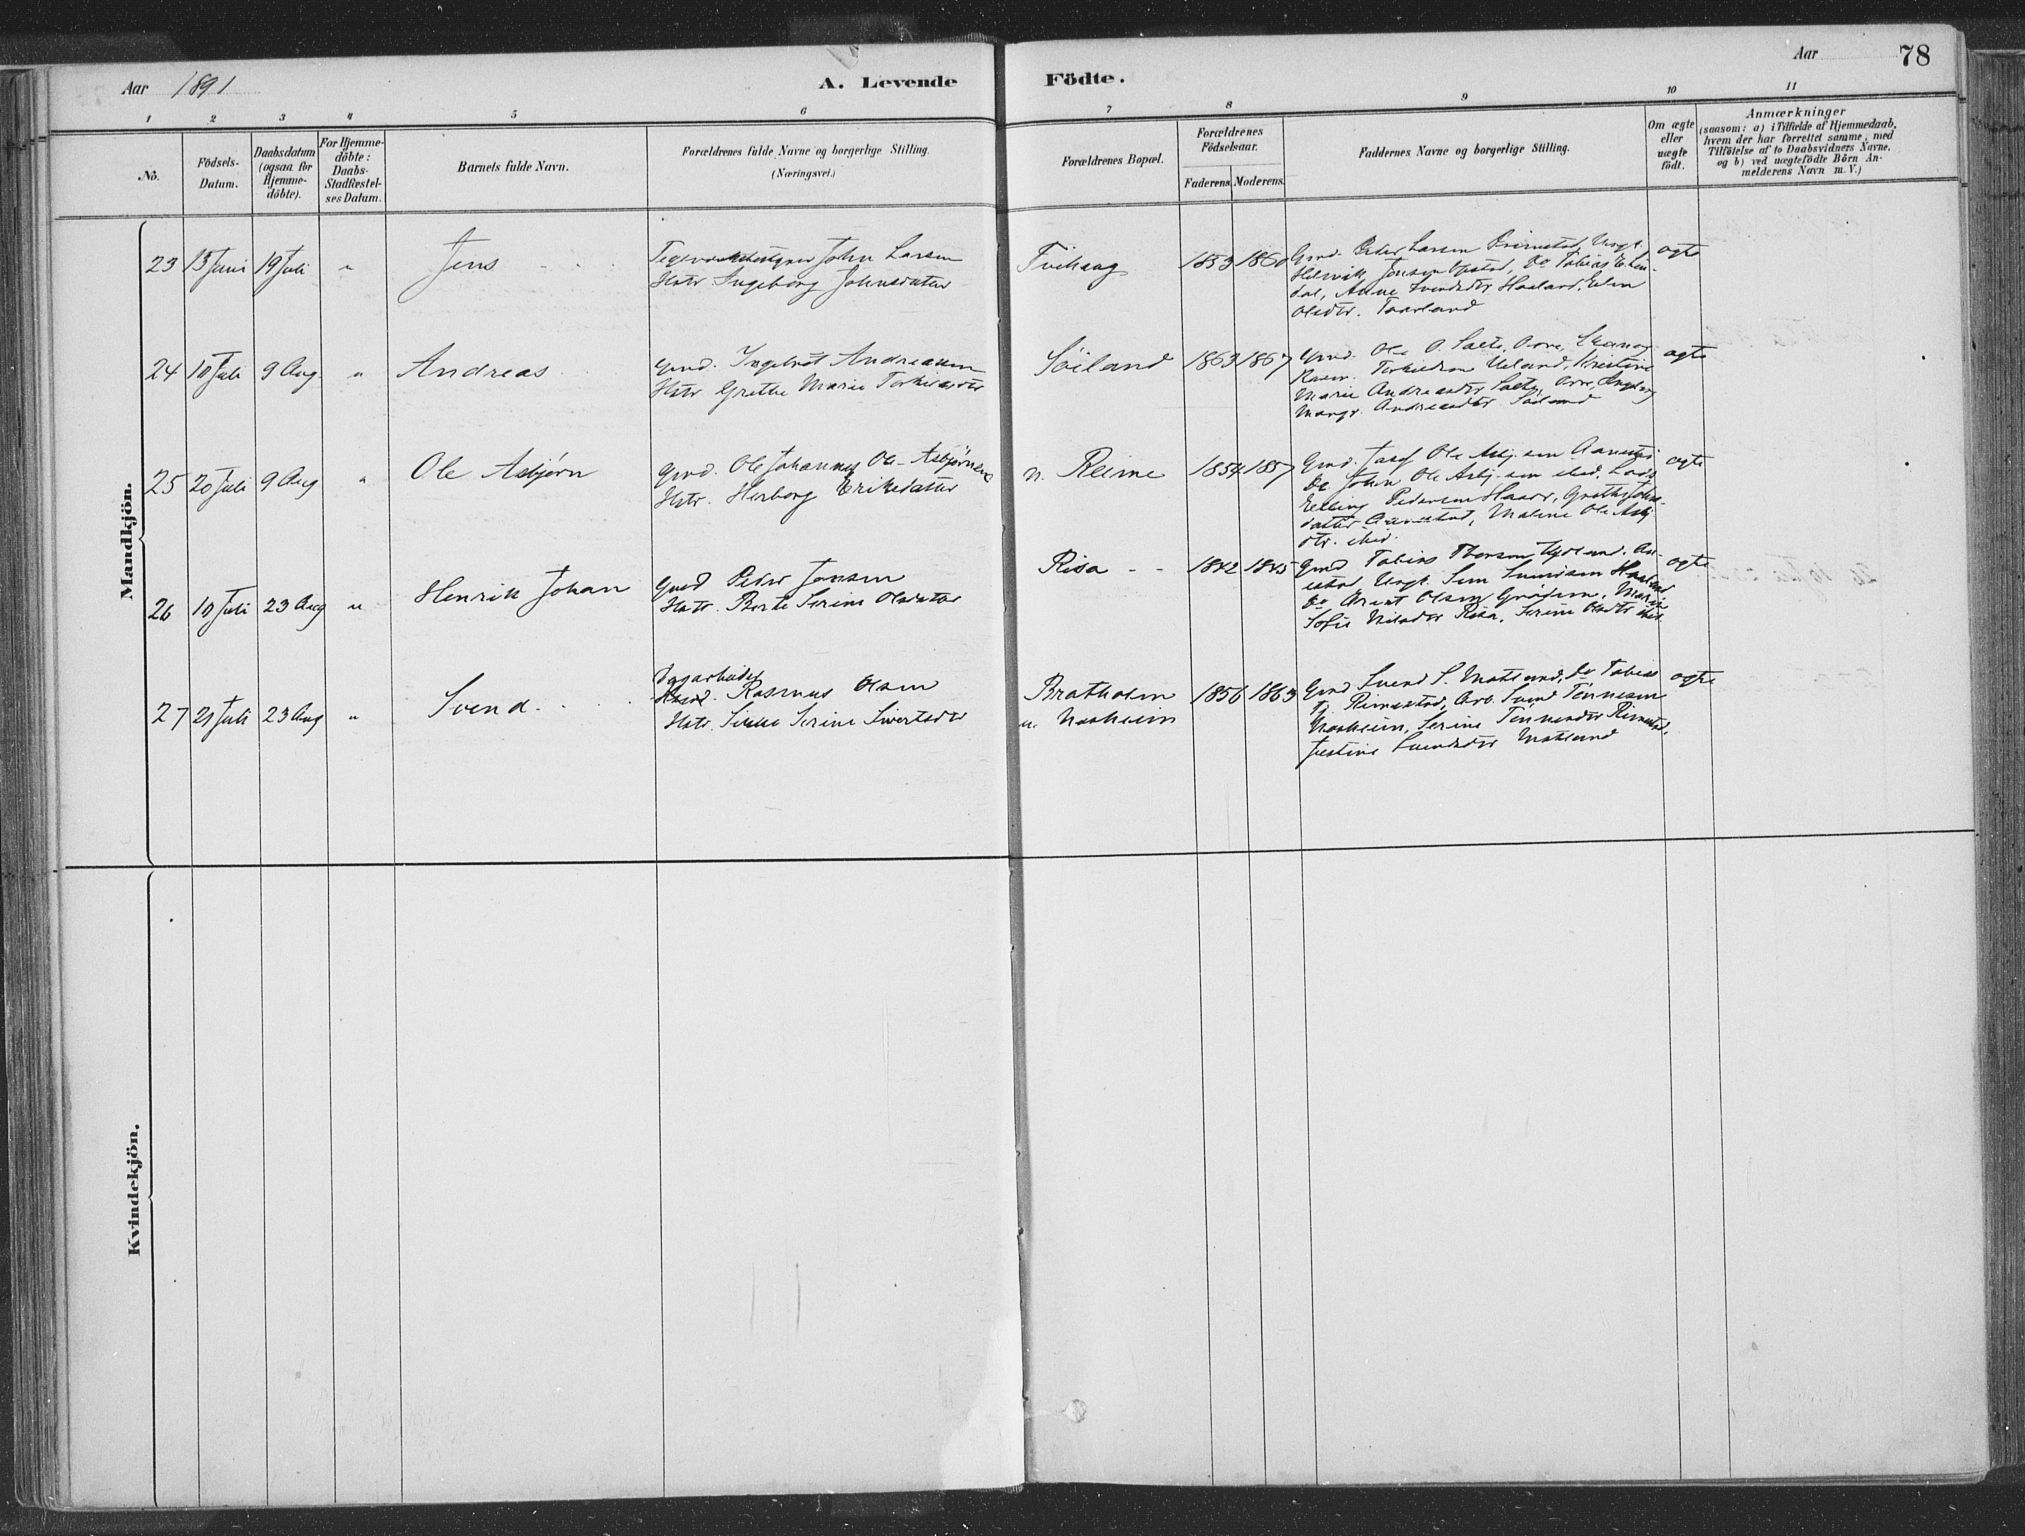 Aar 1891
A. Levende Födte.
Aar
78
1 2 3 4 5 6 7 8 9 10 11
No.
Födsels-Datum.
Daabsdatum (ogsaa for Hjemme-döbte).
For Hjemme-döbte: Daabs-Stadfæstel-ses Datum.
Barnets fulde Navn.
Forældrenes fulde Navne og borgerlige Stilling.
(Næringsvei.)
Forældrenes Bopæl.
Forældrenes Födselsaar.
Faderens. Moderens.
Faddernes Navne og borgerlige Stilling.
Om ægte eller uægte födt.
Anmærkninger
(saasom: a) i Tilfælde af Hjemmedaab,
hvem der har forrettet samme, med
Tilföielse af to Daabsvidners Navne.
og b) ved uægtefödte Börn An-
melderens Navn m. V.)
Mandkjön.
23 13 Juni 19 Juli " Jens
John Larsen
Hstr. Ingeborg Johnsdatter
Tvihaug 1853 1860
Gmd. Peder Larsen Ungk.
Jonsen Opstad, Do Tobias
dal, Anne Svendsdtr Haaland, Elen
Olsdtr. Taarland
ægte
24 10 Juli 9 Aug. " Andreas
Gmd. Ingebret Andreassen
Hstr Grethe Marie Torkelsdtr
Söiland 1863 1867
Gmd. Ole O. Salte, Orre,
Rasm. Torkildsen Ueland, Kristine
Marie Andreasdtr Salte, Orre, Ingeborg
Margr. Andreasdtr Söiland
ægte
25 20 Juli 9 Aug " Ole Asbjørn
Gmd. Ole Johannes Ole-Asbjørnsen
Hstr. Herborg Eriksdatter
n. Reime 1854 1857
Gmd. Josef Ole Asbj.sen Aanestad
Do John Ole Asbj.sen ibid. Lods
Elling Pedersen Haar, Grethe Johns-
datter Aanestad, Malene Ole Asbj.
dtr. ibid.
ægte
26 10 Juli 23 Aug " Henrik Johan
Gmd Peder Jonsen
Hstr. Berte Serine Olsdatter
Risa 1842 1845
Gmd Tobias Thorsen
Ungk. Sem Svendsen Haaland
Do Arent Olsen Grödem, Marie
Sofie Nilsdtr Risa, Serine Olsdtr ibid.
ægte
27 21 Juli 23 Aug " Svend
Rasmus Olsen
Hstr. Serine Sivertsdtr
Bratholm
u. Nærheim 1856 1863
Gmd Svend S. Motland, Do Tobias
Tj. Rimestad, Arb. Svend Tønnesen
Nærheim, Serine Tønnesdtr Rimestad,
Justine Svendsdtr Motland
ægte
Kvindekjön.